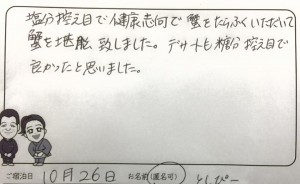 塩分控え目で健康志向で蟹をたらふくいただいて
蟹を堪能致しました。デザートも糖分控え目で
良かったと思いました。
ご宿泊日 10月26日 お名前(匿名可) としぴー